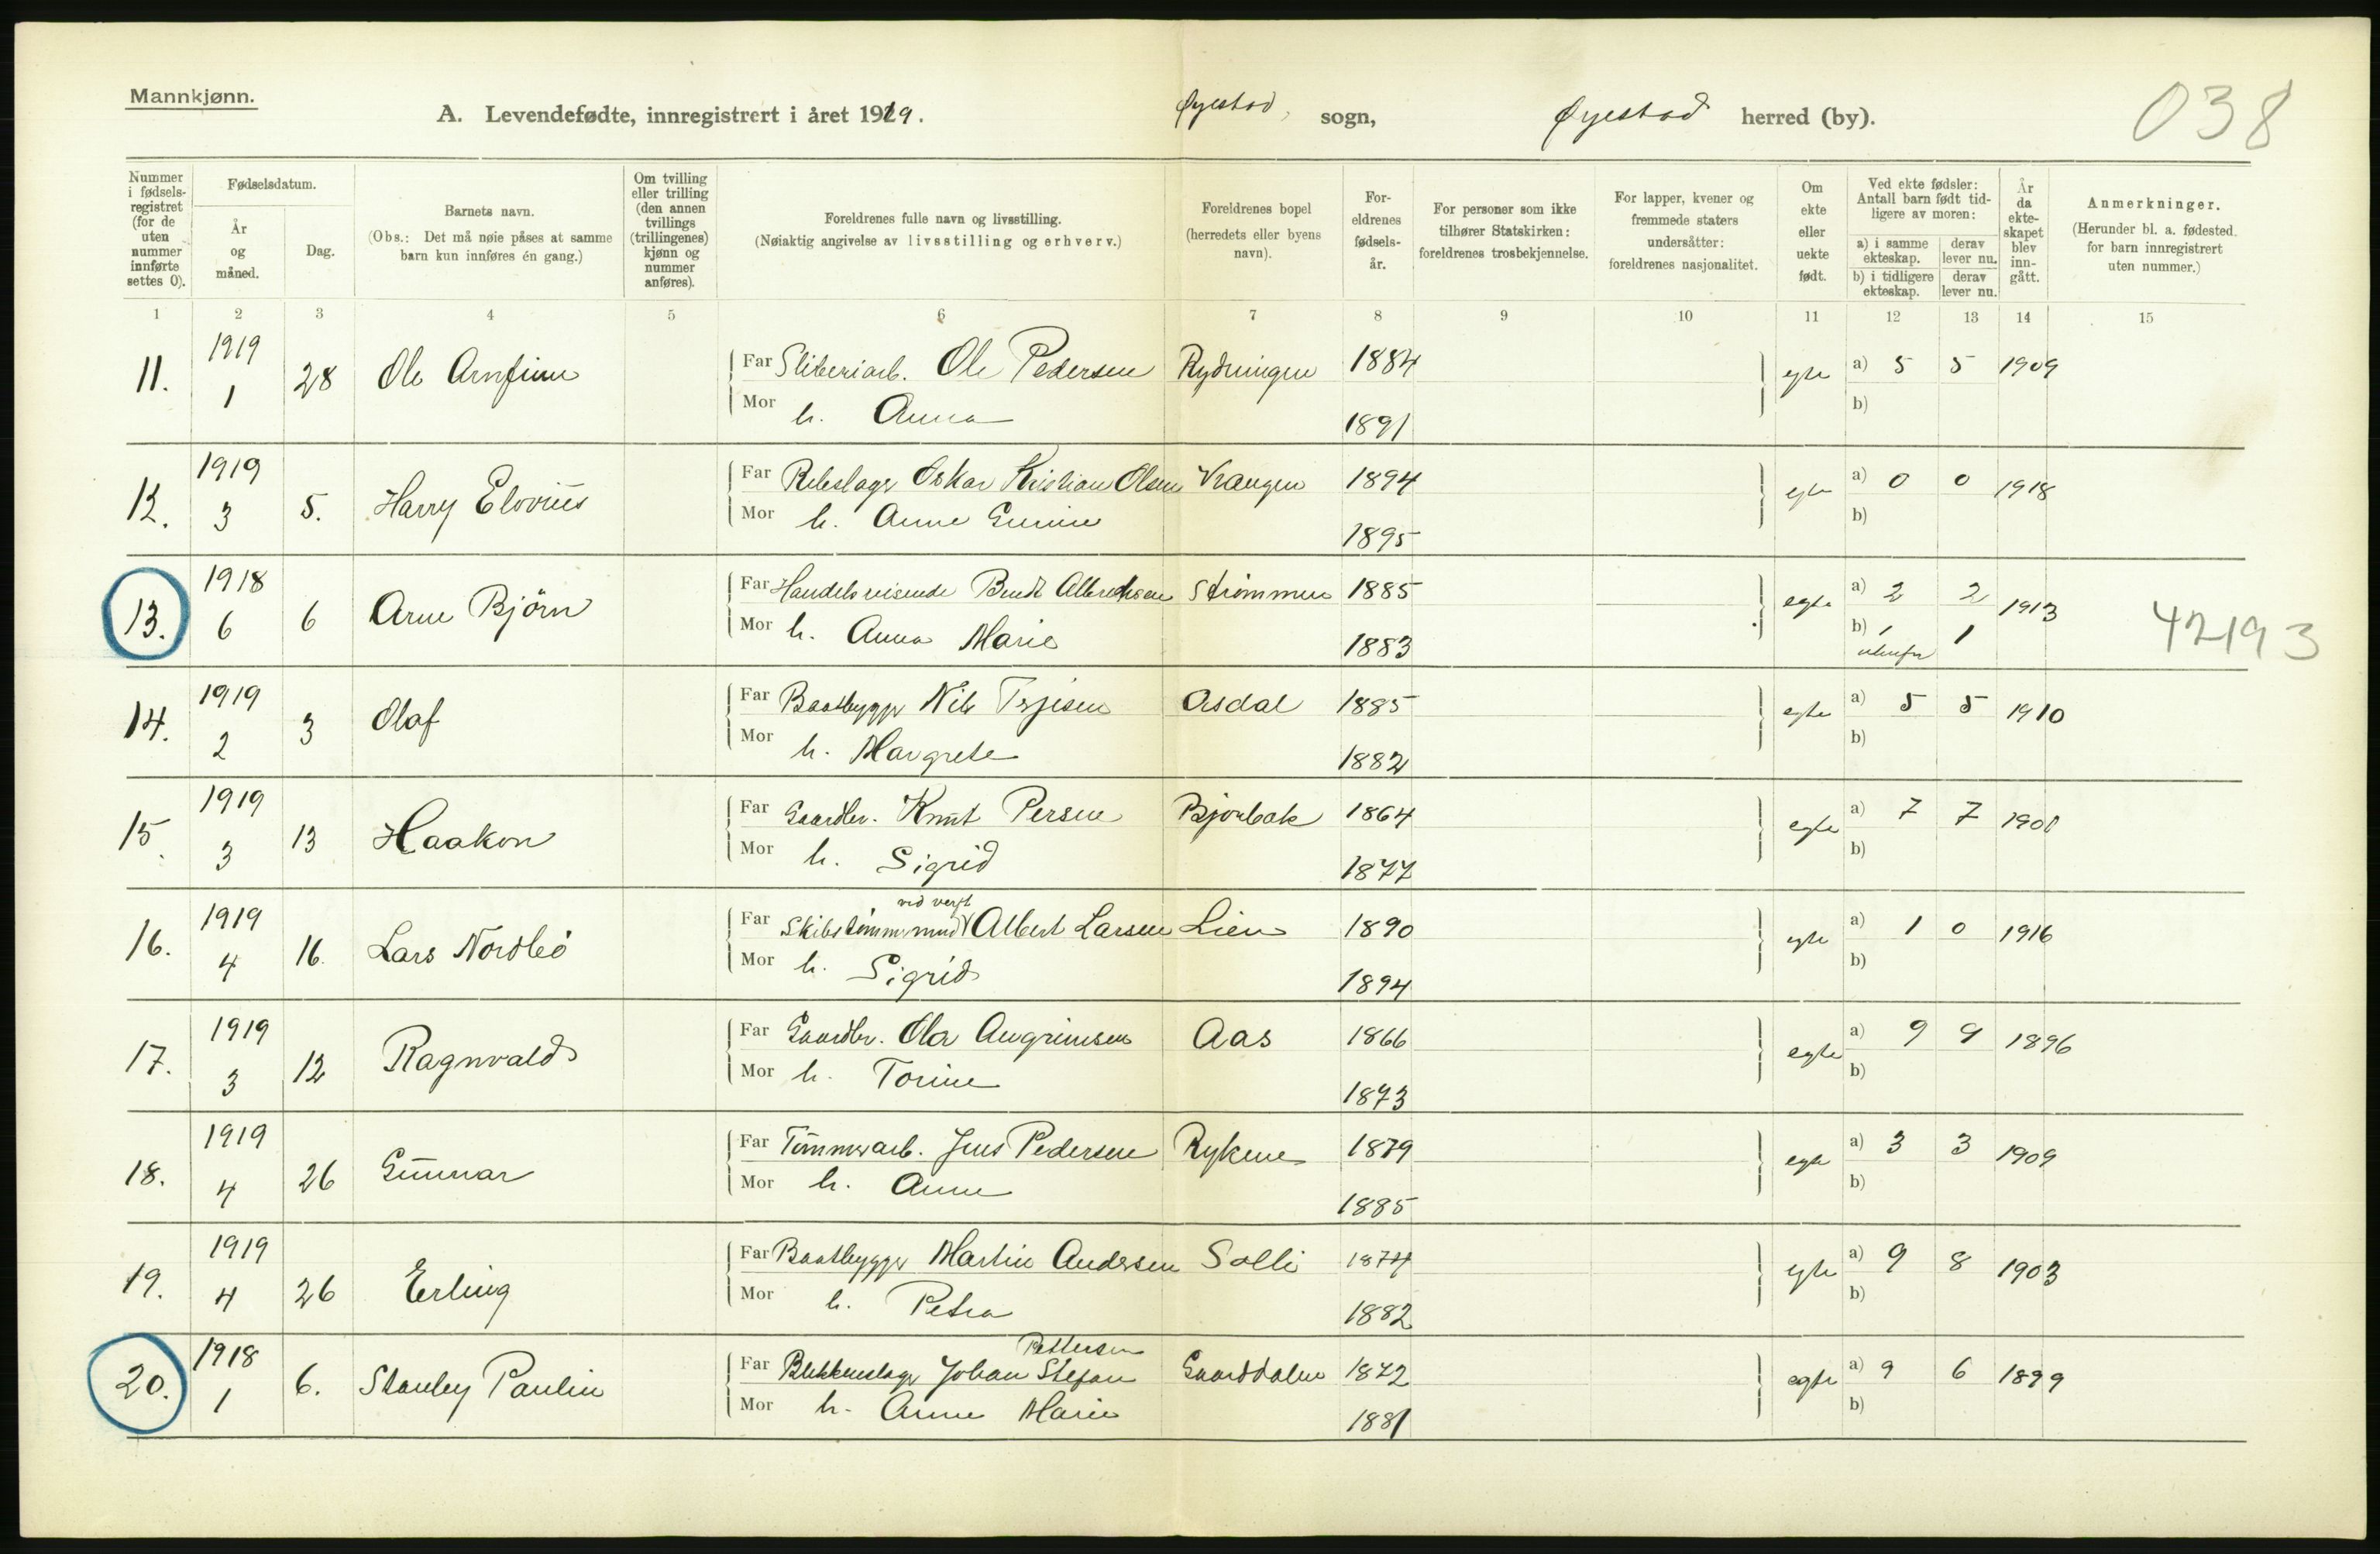 Mannkjønn.
A. Levendefødte, innregistrert i året 1919.
Øyestad, sogn,
Øyestad herred (by).
038
Nummer i fødsels-registret (for de uten nummer innførte settes 0).
Fødselsdatum.
År og måned.
Dag.
Barnets navn.
(Obs.: Det må nøie påses at samme barn kun innføres én gang.)
Om tvilling eller trilling (den annen tvillings (trillingenes) kjønn og nummer anføres).
Foreldrenes fulle navn og livsstilling.
(Nøiaktig angivelse av livsstilling og erhverv.)
Foreldrenes bopel (herredets eller byens navn).
For-eldrenes fødsels-år.
For personer som ikke tilhører Statskirken: foreldrenes trosbekjennelse.
For lapper, kvener og fremmede staters undersåtter: foreldrenes nasjonalitet.
Om ekte eller uekte født.
Ved ekte fødsler: Antall barn født tid-ligere av moren:
a) i samme ekteskap.
derav lever nu.
b) i tidligere ekteskap.
derav lever nu.
År da ekte-skapet blev inn-gått.
Anmerkninger.
(Herunder bl. a. fødested. for barn innregistrert uten nummer.)
1 2 3 4 5 6 7 8 9 10 11 12 13 14 15
11. 1919 1 28 Ole Arnfinn
Far Sliberiarb. Ole Pedersen Rydningen 1884 egte a) 5 5 1909
Mor h. Anna 1891 b)
12. 1919 3 5. Harry Elovius
Far Rebslager Oskar Kristian Olsen Vrangen 1894 egte a) 0 0 1918
Mor h. Anne Gurine 1895 b)
13. 1918 6 6 Arne Björn
Far Handelsreisende Bendt Albrethsen Strömmen 1885 egte a) 2 2 1913
Mor h. Anna Marie 1883 b) 1 1
42193
14. 1919 2 3 Olaf
Far Baatbygger Nils Terjesen Asdal 1885 egte a) 5 5 1910
Mor h. Margrete 1882 b)
15. 1919 3 13 Haakon
Far Gaardbr. Knut Persen Bjorbæk 1864 egte a) 7 7
Mor h. Sigrid 1877 b)
16. 1919 4 16. Lars Nordbö
ved verft
Far Skibstømmermand Albert Larsen Lien 1890 egte a) 1 0 1916
Mor h. Sigrid 1894 b)
17. 1919 3 12 Ragnvald
Far Gaardbr. Ola Angrimsen Aas 1866 egte a) 9 9 1896
Mor h. Torine 1873 b)
18. 1919 4 26 Gunnar
Far Tömmerarb. Jens Pedersen Rykene 1879 egte a) 3 3 1909
Mor h. Anne 1885 b)
19. 1919 4 26 Erling
Far Baatbygger Martin Andersen Solli 1874 egte a) 9 8 1903
Mor h. Petra 1882 b)
20. 1918 1 6. Stanley Paulin
Pettersen
Far Blikkenslager Johan Stefan Gaarddalen 1872 egte a) 9 6 1899
Mor h. Anne Marie 1881 b)